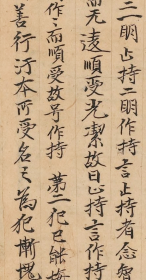 二明占持二明作持言止持者念智
而无遠順受光潔故曰止持言作持
作〻而順受故号作持 第二犯已能
善行汙本所受名之為犯慚愧